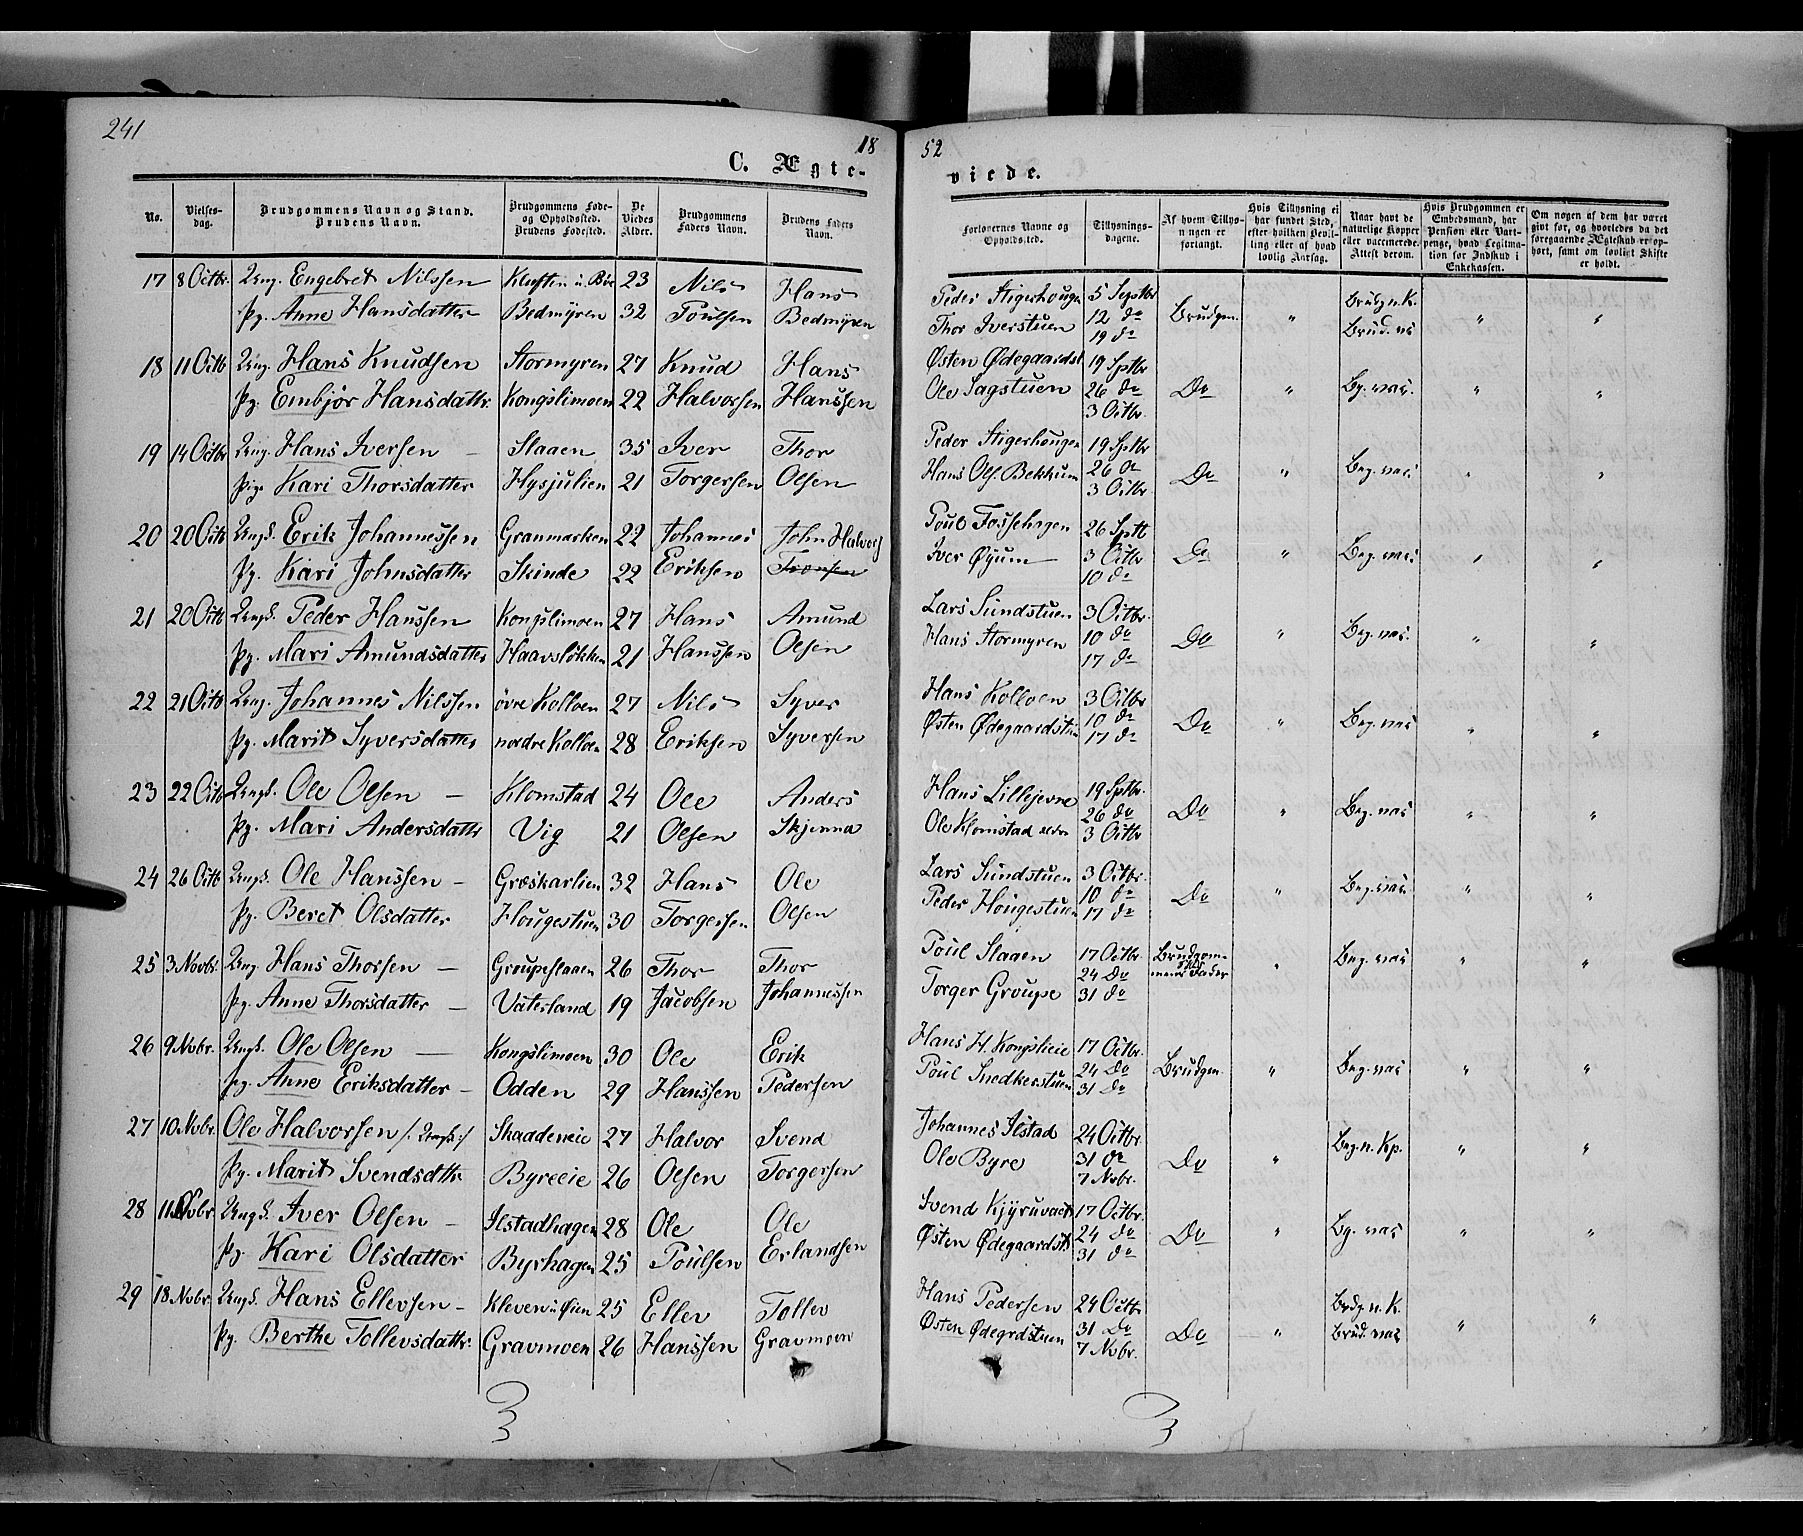 241
18
52
C. Ægte-
viede.
No.
Vielses-
dag.
Brudgommens Navn og Stand.
Brudens Navn.
Brudgommens Føde-
og Opholdssted.
Brudens Fødested.
De
Viedes
Alder.
Brudgommens
Faders Navn.
Brudens Faders
Navn.
Forlovernes Navne og
Opholdssted.
Tillysnings-
dagene.
Af hvem Tillys-
ningen er
forlangt.
Hvis Tillysning ei
har fundet Sted,
efter hvilken Bevil-
ling eller af hvad
lovlig Aarsag.
Naar havt de
naturlige Kopper
eller vaccinerede.
Attest derom.
Hvis Brudgommen er
Embedsmand, har
Pension eller Vart-
penge, hvad Legitma-
tion for Indskud i
Enkekassen.
Om nogen af dem har været
givt før, og hvorledes da det
foregaaende Ægteskab er op-
hørt, samt om lovligt Skifte
er holdt.
17 8 Octbr. Ung. Engebret Nilssen Kluften u. Bøe 23 Nils Hans Peder Stigershougen 5 Septbr Brudgm. " Brudg n. K. " "
pg. Anne Hansdatter Bedmyren 32 Poulsen Bedmyren Thor Iverstuen 12 do Brud. nas
19 do
18 11 Octb Ung. Hans Knudsen Stormyren 27 Knud Hans Østen Ødegaardst 19 Sptbr
pg. Embjør Hansdattr. Kongslimoen 22 Halvorsen Hanssen Ole Sagstuen 26 do Do " Bg. nas. " "
3 Octbr.
19 14 Octbr Ung. Hans Iversen – Slaaen 35 Iver Thor Peder Stigershougen 19 Sptbr
pig. Kari Thorsdatter Hysjulien 21 Torgersen Olsen Hans Ols. Bekkum 26 do Do " Beg. nas " "
3 Octbr.
20 20 Octb Ungk. Erik Johannessen Granmarken 22 Johannes John Halvors Poul Fossehagen 26 Sptb
pg. Kari Johnsdatter Skinde 22 Eriksen Tronsen Iver Øyum 3 Octbr Do " Beg. nas. " "
10 do
21 20 Octb Ungk. Peder Hanssen Kongslimoen 27 Hans Amund Lars Sundstuen 3 Octbr.
pg. Mari Amundsdatter Haavsløkken 21 Hanssen Olsen Hans Stormyren 10 do Do " Beg. nas. " "
17 do
22 21 Octb Ung. Johannes Nilssen övre Kolloen 27 Nils Syver Hans Kolloen 3 Octbr.
pg. Marit Syversdatter nordre Kolloen 28 Eriksen Syversen Østen Ødegaardstun 10 do Do " Beg. nas " "
17 do
23 22 Octb Ungk. Ole Olsen – Klomstad 24 Ole Anders Hans Lillejevne 19 Sptbr.
pg. Mari Andersdatter Vig 21 Olsen Skjenna Ole Klomstad 26 do Do " Beg. nas " "
3 Octbr
24 26 Octb Ungk. Ole Hanssen – Græskarlien 32 Hans Ole Lars Sundstuen 3 Octbr.
pg. Beret Olsdatter Hougestuen 30 Torgersen Olsen Peder Hougestuen 10 do Do " Beg. nas. " "
17 do
25 3 Novbr. Ung. Hans Thorsen – Groupeslaaen 26 Thor Thor Poul Slaaen 17 Octbr. Brudgom- " Beg. nas " "
pg. Anne Thorsdatter – Vaterland 19 Jacobsen Johannessen Torger Groupe 24 Do mens Fader
31 do
26 9 Nvbr. Ungk. Ole Olsen – Kongslimoen 30 Ole Erik Hans H. Kongslieie 17 Octbr.
pg. Anne Eriksdatter – Odden 29 Hanssen Pedersen Poul Snedkerstuen 24 Do Brudgm " Beg. nas " "
31 Do
27 10 Nvbr. Ole Halvorsen /: Ungk :/ Skaddeneie 27 Halvor Svend Johannes Ilstad 24 Octbr
pg. Marit Svendsdtr. Byreeie 26 Olsen Torgersen Ole Byre 31 do Do " Beg. n. Kp. " "
7 Nvbr.
28 11 Nvbr. Ungk. Iver Olsen – Ilstadhagen 28 Ole Ole Svend 17 Octbr.
pg. Kari Olsdatter Byrhagen 25 Poulsen Erlandsen Østen Ødegaardst 24 do Do " Bg. nas " "
31 do
29 18 Nvbr. Ungk. Hans Ellevsen – Kleven u. Øien 25 Ellev Tollev Hans Pedersen 24 Octbr Brdg. n. K.
pg. Berthe Tollevsdattr: Gravmoen 26 Hanssen Gravmoen Østen Ødegrdstuen 31 Do Do " Brud. nas " "
7 Nvbr.
3
3